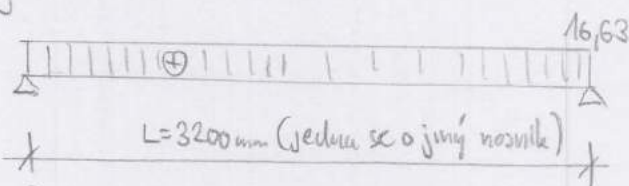 16,63
⊕
L=3200mm (jedna se o jiný nosník)